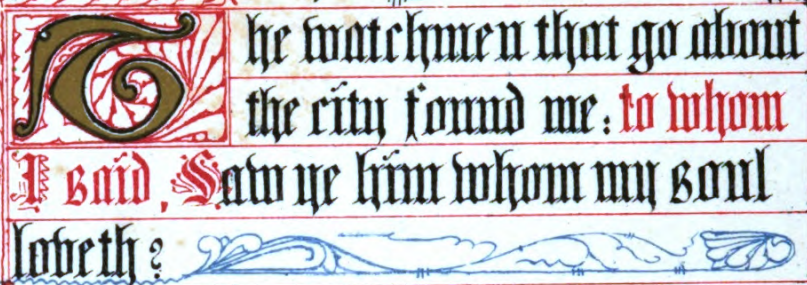 The watchmen that go about
the city found me: to whom
I said, Saw ye him whom my soul
loveth?